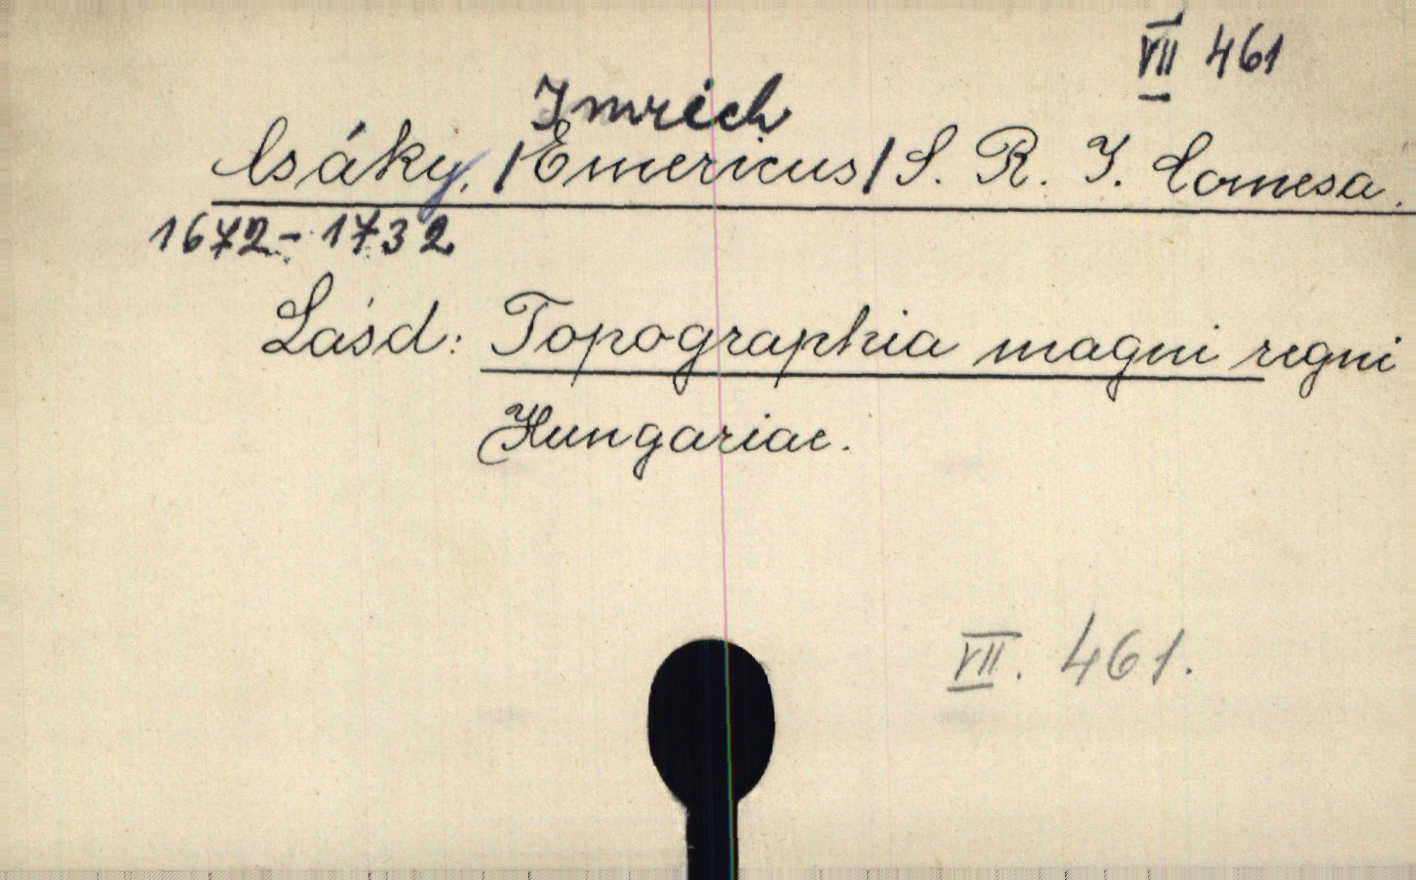 VII 461
Imrich
Csáky, /Emericus/ S. R. I. Comesa.
1672-1732
Lásd: Topographia magni regni
Hungariae.
VII. 461.